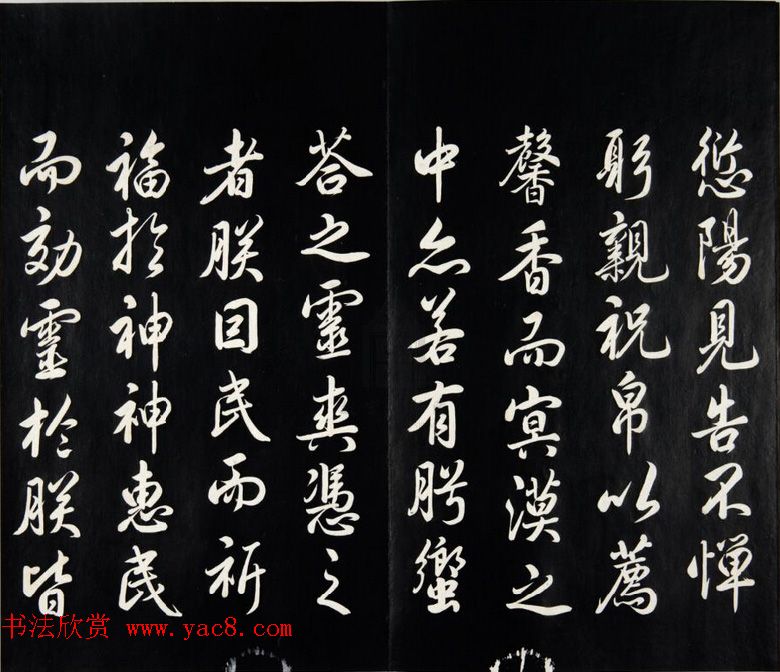 愆陽見告不憚
躬親祝帛以薦
馨香而冥漠之
中亦若有肹蠁
荅之靈爽憑之
者朕因民而祈
福於神神惠民
而效靈於朕皆
书法欣赏 www.yac8.com